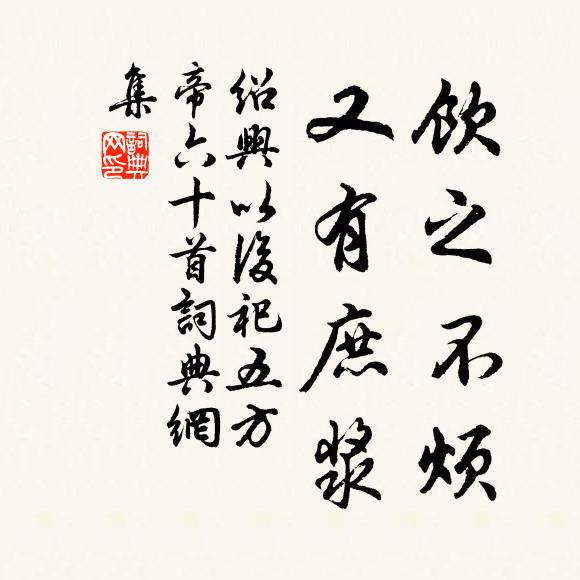 飲之不煩
又有庶漿
紹興以後祀五方
帝六十首詞典網
集
詞典網印